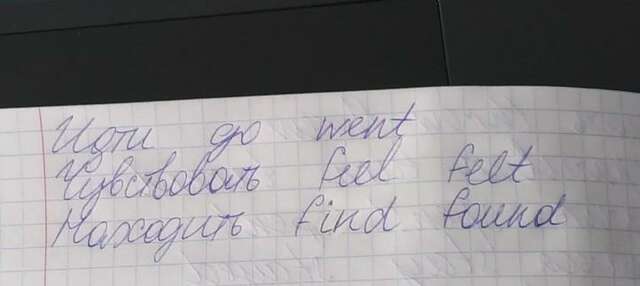 Идти go went
Чувствовать feel felt
Находить find found